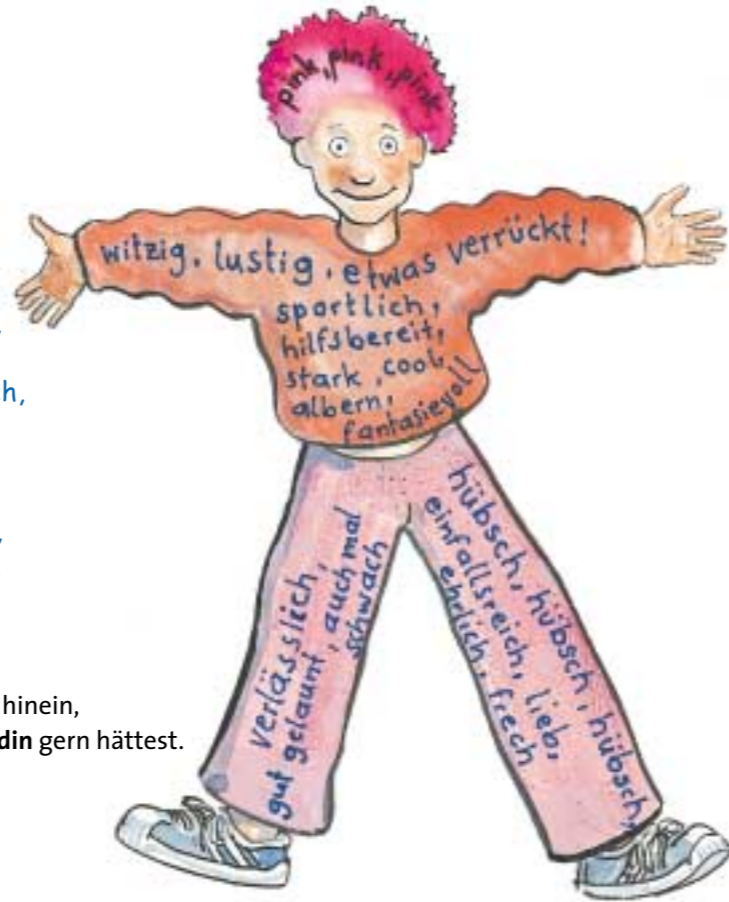 pink, pink, pink
witzig, lustig, etwas verrückt!
sportlich,
hilfsbereit,
stark, cool,
albern,
fantasievoll
verlässlich,
gut gelaunt, auch mal
schwach
hübsch, hübsch, hübsch,
einfallsreich, lieb,
ehrlich, frech
hinein,
din gern hättest.